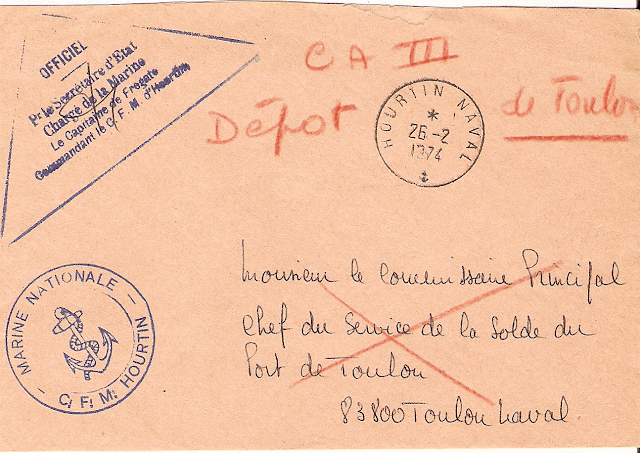 OFFICIEL
Pr le Secrétaire d'Etat
Chargé de la Marine
Le Capitaine de Frégate
Commandant le C. F. M. d'Hourtin
CA III
Dépot de Toulon
HOURTIN NAVAL
26-2
1974
MARINE NATIONALE
C. F. M. HOURTIN
Monsieur le Commissaire Principal
Chef du Service de la Solde du
Port de Toulon
83800 Toulon Naval.